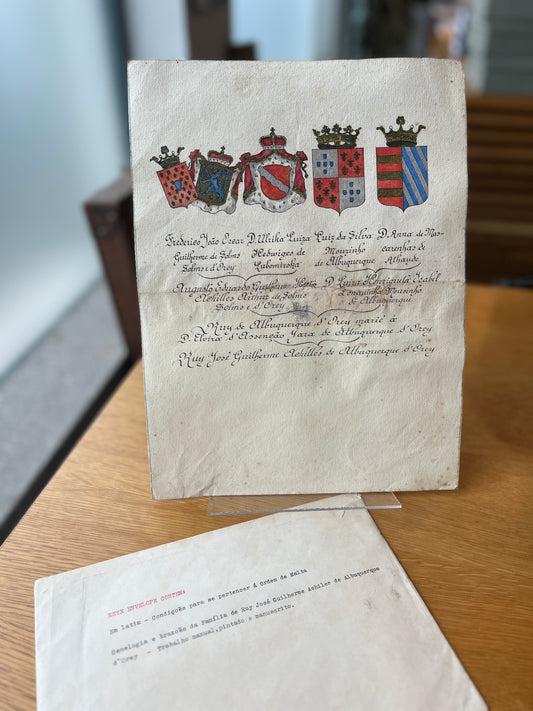 Frederico João Cesar D. Ulrika Luiza Luiz da Silva D. Anna de Mas-
Guilherme de Solms Hedwiges de Mourinho carenhas de
Solms e d'Orey de Albuquerque Athaude
Augusto Eduardo Guilherme D. Luiza Henriqueta Isabel
Achilles Arthur de Solms Mousinho
Solms e d'Orey de Albuquerque
Ruy de Albuquerque d'Orey marié à
D. Elvira d'Assenção Jara de Albuquerque d'Orey
Ruy José Guilherme Achilles de Albuquerque d'Orey
ESTE ENVELOPE CONTEM:
Em latim - Condições para se pertencer á Ordem de Malta
Genelogia e brazoês da Familia de Ruy José Guilherme Achiles de Albuquerque
d'Orey - Trabalho manual, pintado e manuscrito.